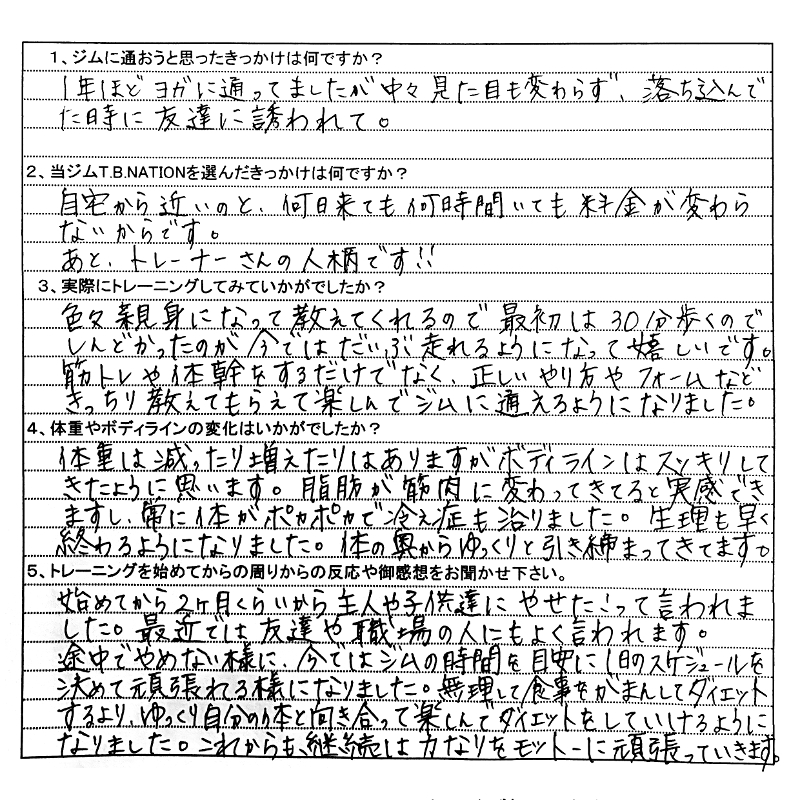 1、ジムに通おうと思ったきっかけは何ですか？
1年ほどヨガに通ってましたが中々見た目も変わらず、落ち込んで
た時に友達に誘われて。
2、当ジムT.B.NATIONを選んだきっかけは何ですか？
自宅から近いのと、何日来ても何時間いても料金が変わら
ないからです。
あと、トレーナーさんの人柄です!!
3、実際にトレーニングしてみていかがでしたか？
色々親身になって教えてくれるので最初は30分歩くので
しんどかったのが今ではだいぶ走れるようになって嬉しいです。
筋トレや体幹をするだけでなく、正しいやり方やフォームなど
きっちり教えてもらえて楽しんでジムに通えるようになりました。
4、体重やボディラインの変化はいかがでしたか？
体重は減ったり増えたりはありますがボディラインはスッキリして
きたように思います。脂肪が筋肉に変わってきてると実感でき
ますし、常に体がポカポカで冷え症も治りました。生理も早く
終わるようになりました。体の奥からゆっくりと引き締まってきてます。
5、トレーニングを始めてからの周りからの反応や御感想をお聞かせ下さい。
始めてから2ヶ月くらいから主人や子供達にやせた!って言われま
した。最近では友達や職場の人にもよく言われます。
途中でやめない様に、今ではジムの時間を目安に1日のスケジュールを
決めて頑張れる様になりました。無理して食事をがまんしてダイエット
するより、ゆっくり自分の体と向き合って楽しんでダイエットをしていけるように
なりました。これからも、継続は力なりをモットーに頑張っていきます。